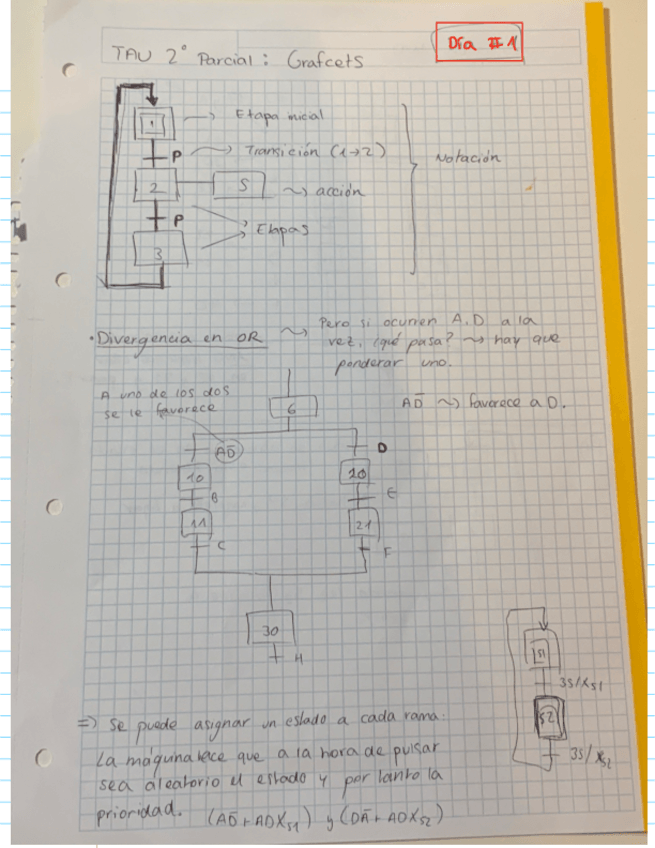 Día #1
TAU 2º Parcial: Grafcets
1
Etapa inicial
P
Transición (1→2)
Notación
2
S
acción
P
Etapas
3
· Divergencia en OR
Pero si ocurren A,D a la
vez, ¿qué pasa? ~> hay que
ponderar uno.
A uno de los dos
se le favorece
6
AD̄ ~> favorece a D.
AD̄
D
10
20
B
E
11
21
C
F
30
H
S1
3s/X_S1
S2
3s/X_S2
=> Se puede asignar un estado a cada rama.
La máquina hace que a la hora de pulsar
sea aleatorio el estado y por tanto la
prioridad. (AD̄ + ADX_S1) y (DĀ + ADX_S2)